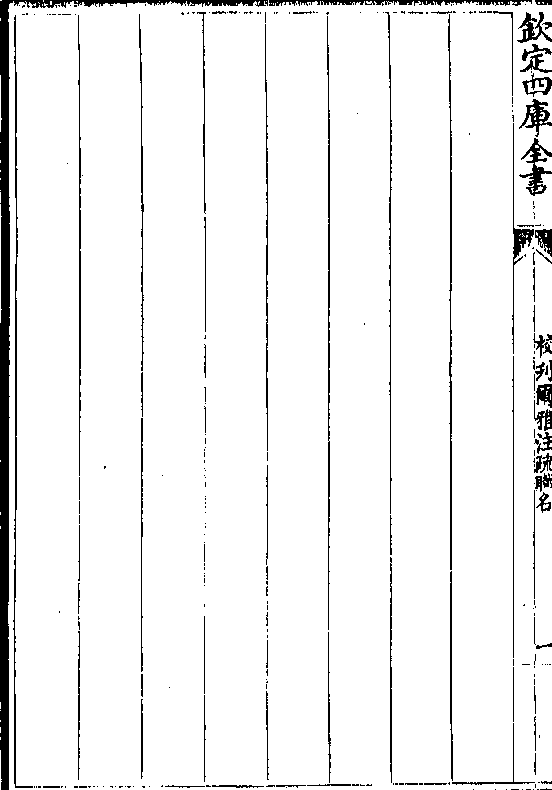 欽定四庫全書
校刋爾雅注疏職名
一